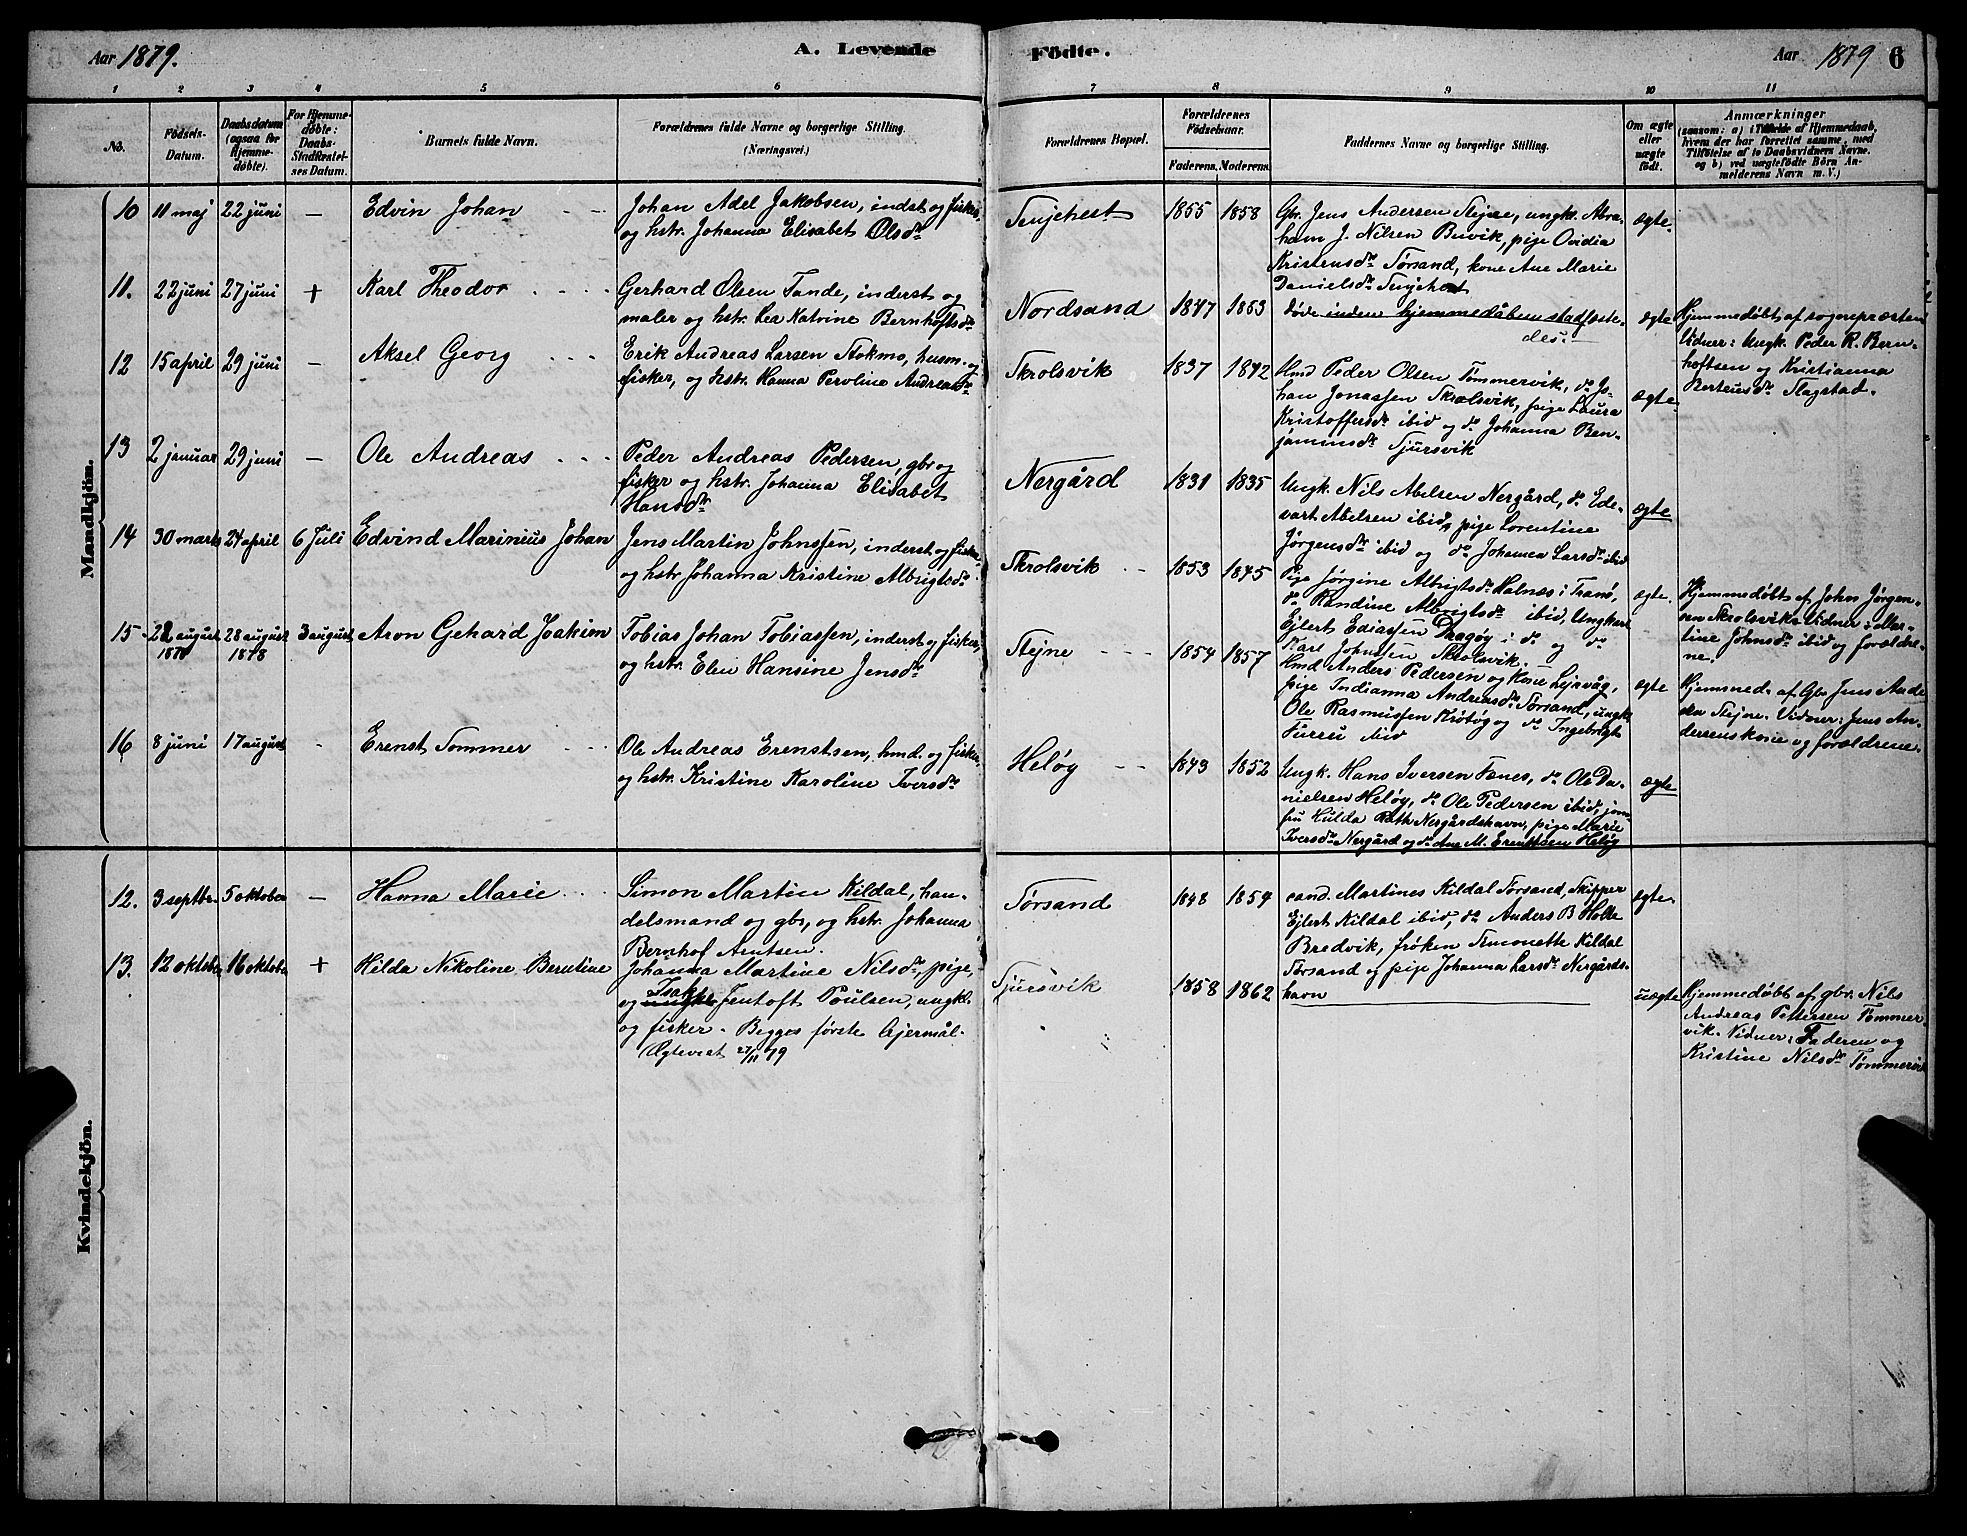 Aar 1879.
A. Levende
Födte.
Aar 1879
6
1 2 3 4 5 6 7 8 9 10 11
No.
Födsels-
Datum.
Daabsdatum
(ogsaa for
Hjemme-
døbte).
For Hjemme-
døbte:
Daabs-
Stadfæstel-
ses Datum.
Barnets fulde Navn.
Forældrenes fulde Navne og borgerlige Stilling.
(Næringsvei.)
Forældrenes Bopæl.
Forældrenes
Fødselsaar.
Faderens. Moderens.
Faddernes Navne og borgerlige Stilling.
Om ægte
eller
uægte
født.
Anmærkninger
(saasom: a) i Tilfælde af Hjemmedaab,
hvem der har forrettet samme, med
Tilføielse af to Daabsvidners Navne.
og b) ved uægtefødte Børn An-
melderens Navn m. V.)
Mandkjön.
10 11 maj 22 juni — Edvin Johan
Johan Adel Jakobsen, indst og fisker
og hstr. Johanna Elisabet Olsdr
1855 1858
Gbr. Jens Andersen Stejne, ungk. Abra-
ham J. Nilsen Buvik, pige Ovidia
Kristensdr Tørsand, kone Ane Marie
Danielsdr
ægte
11. 22 juni 27 juni + Karl Theodor
Gerhard Olsen Tande, inderst og
maler og hstr. Lea Katrine Bernhoftsdr
Nordsand 1847 1853
døde inden hjemmedåben stadfæste-
des.
ægte
Hjemmedøbt af sognepræsten
Vidner: Ungk. Peder R. Bern-
hoftsen og Kristianna
Berteusdr Flagstad.
12 15 april 29 juni — Aksel Georg
Erik Andreas Larsen Stokmo, husm. og
fisker, og hstr. Hanna Peroline Andreasdr
Skrolsvik 1837 1842
Hmd Peder Olsen Tømmervik, do Jo-
han Jonassen Skrolsvik, pige Laura
Kristoffersdr ibid og do Johanna Ben-
jaminsdr Tjursvik
ægte
13 2 januar 29 juni — Ole Andreas
Peder Andreas Pedersen, gbr og
fisker og hstr. Johanna Elisabet
Hansdr
Nergård 1831 1835
Ungk. Nils Abelsen Nergård, do Ede-
vart Abelsen ibid, pige Lorentine
Jørgensdr ibid og do Johanna Larsdr ibid
ægte
14 30 marts 24 april 6 Juli Edvind Marinius Johan
Jens Martin Johnssen, inderst og fisker
og hstr Johanna Kristine Albrigtsdr
Skrolsvik 1853 1845
Pige Jørgine Albrigtsdr Halnæs i Tranø,
do Randine Albrigtsdr ibid, Ungkarl
Ejlert Ediassen Dragøy i do og do
Karl Johnssen Skrolsvik.
ægte.
Hjemmedøbt af John Jørgen-
sen Skrolsvik. Vidner: Mar-
tine Johnsdr ibid og forældre-
ne.
15 22 august 1878 28 august 1878 3 august Aron Gehard Joakim
Tobias Johan Tobiassen, inderst og fisker,
og hstr. Elen Hansine Jensdr
Stejne 1854 1857
Hmd Anders Pedersen og Kone Lejrvåg,
pige Indianna Andreasdr Tørsand, ungk.
Ole Rasmussen Krøtøy og do Ingebrigt
ægte
Hjemmed. af Gbr Jens Ande
sen Stejne. Vidner: Jens An-
dersens kone og forældrene.
16 8 juni 17 august - Erenst Tommer
Ole Andreas Erenstsen, hmd. og fisker,
og hstr. Kristine Karoline Iversdr
Heløy 1843 1852
Ungk. Hans Iversen Fanes, do Ole Da-
nielsen Heløy, do Ole Pedersen ibid, jom-
fru Hulda Rath Nergårdshavn, pige Marie
Iversdr Nergård og do Ane M. Erentsen Heløy
ægte
Kvindekjön.
12. 3 septbr. 5 oktober — Hanna Marie
Simon Martin Kildal, han-
delsmand og gbr, og hstr. Johanna
Bernhof Arntsen.
Tørsand 1848 1854
cand. Martines Kildal Tørsand, Skipper
Ejlert Kildal ibid, do Anders B Holte
Bredvik, frøken Simonette Kildal
Tørsand og pige Johanna Larsdr Nergårds-
havn
ægte.
13. 12 oktober 16 oktober + Hilda Nikoline Berntine
Johanna Martine Nilsdr, pige,
og Isak Jentoft Poulsen, ungk.
og fisker. Begges første Lejermål.
Ægteviet 27/11 79
Tjursvik 1858 1862
uægte
Hjemmedøbt af gbr. Nils
Andreas Pettersen Tømmer-
vik. Vidner: Faderen og
Kristine Nilsdr Tømmervik